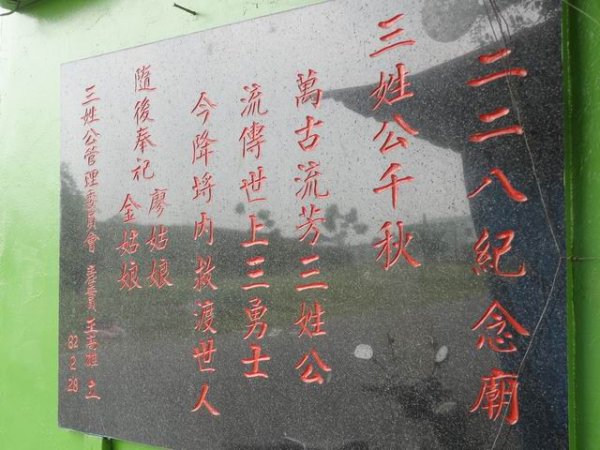 二二八紀念廟
三姓公千秋
萬古流芳三姓公
流傳世上三勇士
今降埓內救渡世人
隨後奉祀廖姑娘
金姑娘
三姓公管理委員會 主委 王
82 2 28